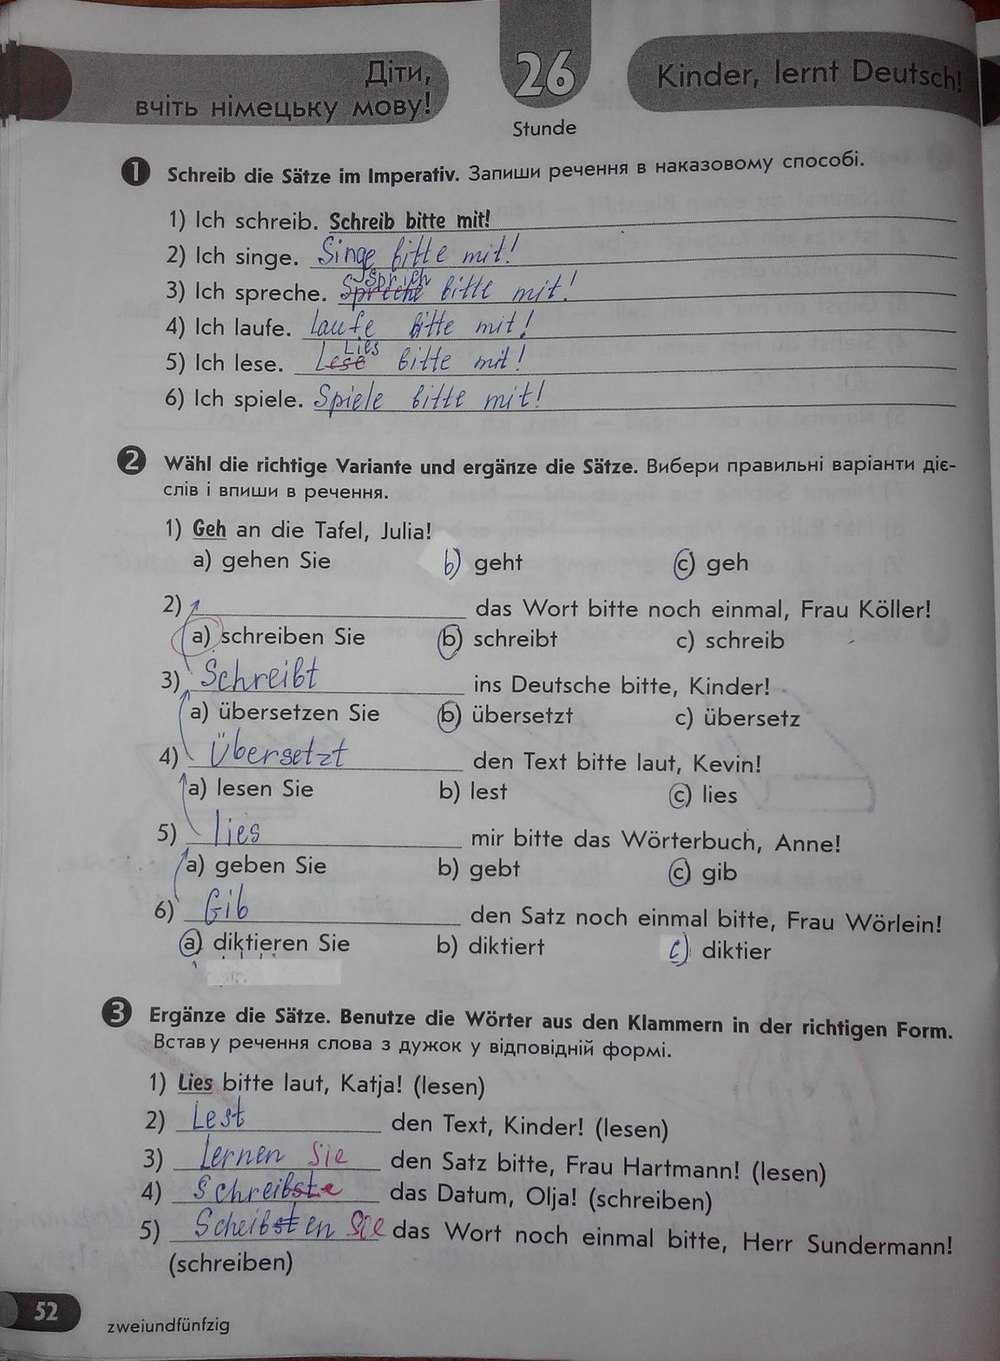 Діти,
вчіть німецьку мову!
26
Stunde
Kinder, lernt Deutsch!
1 Schreib die Sätze im Imperativ. Запиши речення в наказовому способі.
1) Ich schreib. Schreib bitte mit!
2) Ich singe. Singe bitte mit!
sprich
3) Ich spreche. Spreche bitte mit!
4) Ich laufe. Laufe bitte mit!
Lies
5) Ich lese. Lese bitte mit!
6) Ich spiele. Spiele bitte mit!
2 Wähl die richtige Variante und ergänze die Sätze. Вибери правильні варіанти діє-
слів і впиши в речення.
1) Geh an die Tafel, Julia!
a) gehen Sie b) geht c) geh
2) das Wort bitte noch einmal, Frau Köller!
a) schreiben Sie b) schreibt c) schreib
3) Schreibt ins Deutsche bitte, Kinder!
a) übersetzen Sie b) übersetzt c) übersetz
4) Übersetzt den Text bitte laut, Kevin!
a) lesen Sie b) lest c) lies
5) lies mir bitte das Wörterbuch, Anne!
a) geben Sie b) gebt c) gib
6) Gib den Satz noch einmal bitte, Frau Wörlein!
a) diktieren Sie b) diktiert c) diktier
3 Ergänze die Sätze. Benutze die Wörter aus den Klammern in der richtigen Form.
Встав у речення слова з дужок у відповідній формі.
1) Lies bitte laut, Katja! (lesen)
2) Lest den Text, Kinder! (lesen)
3) Lernen Sie den Satz bitte, Frau Hartmann! (lesen)
4) Schreibste das Datum, Olja! (schreiben)
5) Scheibsten Sie das Wort noch einmal bitte, Herr Sundermann!
(schreiben)
52
zweiundfünfzig